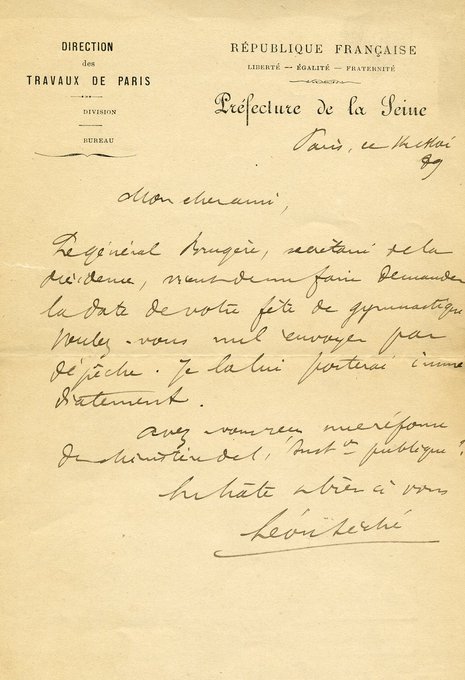 DIRECTION
des
TRAVAUX DE PARIS
DIVISION
BUREAU
RÉPUBLIQUE FRANÇAISE
LIBERTÉ — ÉGALITÉ — FRATERNITÉ
Préfecture de la Seine
Paris, ce Mai
89
Mon cher ami,
Le général Brugère, secrétaire de la
présidence, vient de me faire demander
la date de votre fête de gymnastique
voulez-vous me l'envoyer par
dépêche. Je la lui porterai imme
diatement.
avez vous reçu une réponse
du Ministère de l'Inst on publique ?
En hâte et bien à vous
Léon